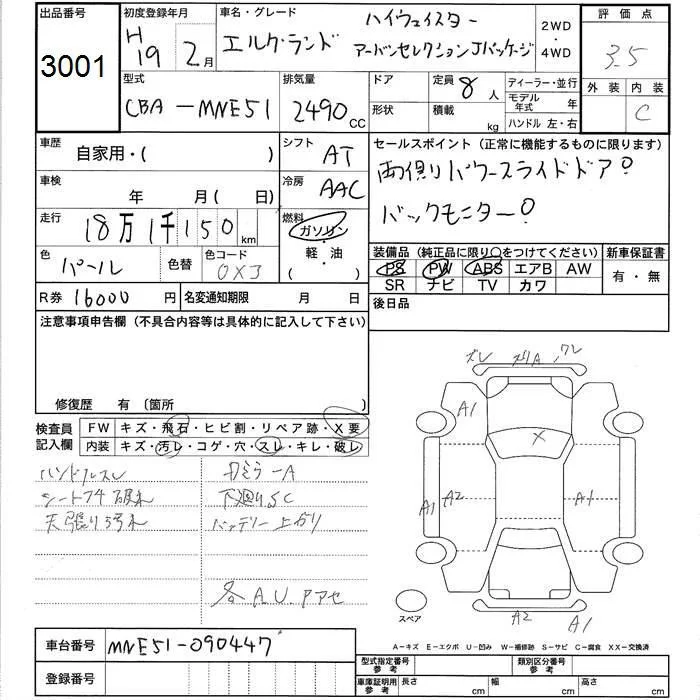 出品番号
3001
初度登録年月
H
19 2月
車名・グレード
エルグランド
ハイウェイスター
アーバンセレクションJパッケージ
2WD
・
4WD
評価点
3.5
外装 内装
C
型式
CBA-MNE51
排気量
2490 CC
ドア
形状
定員 8人
積載 kg
ディーラー・並行
モデル年式 年
ハンドル 左・右
車歴
自家用・( )
シフト AT
セールスポイント(正常に機能するものに限ります)
両側パワースライドドア
バックモニター
車検 年 月( 日)
冷房 AAC
走行 18万1千150 km
燃料
ガソリン
・
軽・油
( )
色 パール
色替
色コード
QX3
装備品(純正品に限り○をつけてください)
PS PW ABS エアB AW
SR ナビ TV カワ
新車保証書
有・無
R券 16000円
名変通知期限 月 日
後日品
注意事項申告欄(不具合内容等は具体的に記入して下さい)
修復歴 有(箇所 )
検査員
記入欄
FW キズ・飛石・ヒビ割・リペア跡・X要
内装 キズ・汚レ・コゲ・穴・スレ・キレ・破レ
ハンドルスレ
天張り汚れ
ミラーA
下廻りSC
バッテリー上がり
各A.U.
ズレ スリA ワレ
A1
X
A1 A2 A1
A2 A1
スペア
A-キズ E-エクボ U-凹み W-補修跡 S-サビ C-腐食 XX-交換済
車台番号 MNE51-090447
登録番号
型式指定番号
参考
類別区分番号
参考
車庫証明用
参考
長さ cm
幅 cm
高さ cm